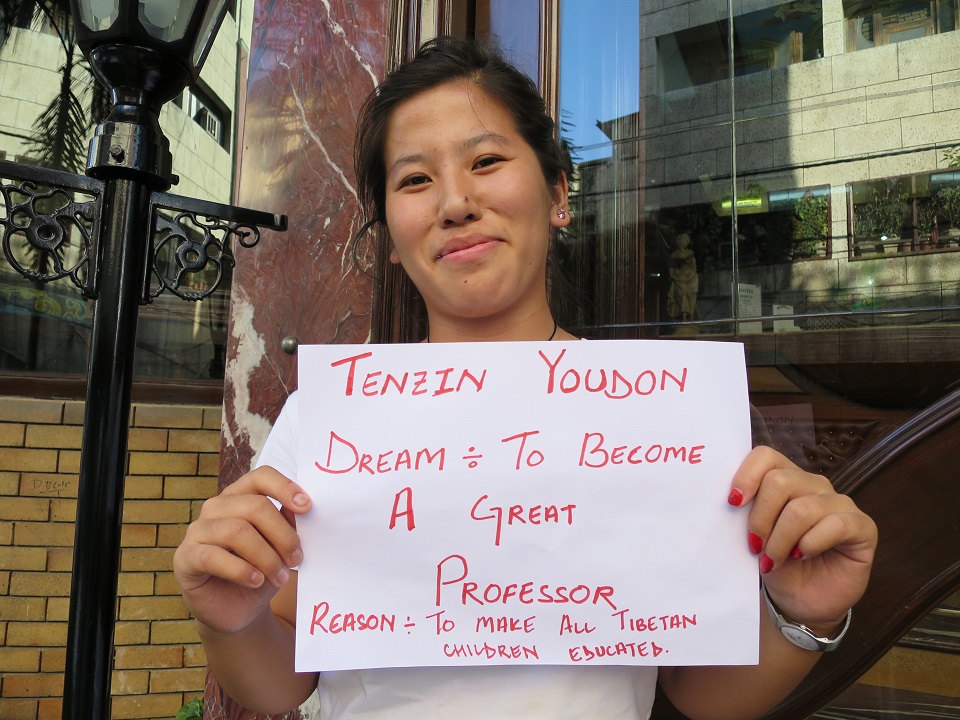 TENZIN YOUDON
DREAM ÷ TO BECOME
A GREAT
PROFESSOR
REASON ÷ TO MAKE ALL TIBETAN
CHILDREN EDUCATED.